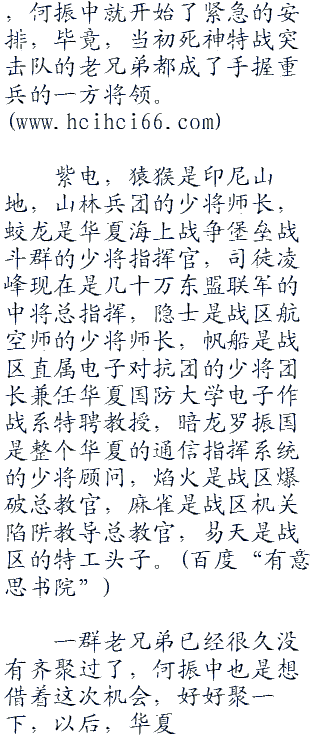 ，何振中就开始了紧急的安
排，毕竟，当初死神特战突
击队的老兄弟都成了手握重
兵的一方将领。
(www.hcihci66.com)
紫电，猿猴是印尼山
地，山林兵团的少将师长，
蛟龙是华夏海上战争堡垒战
斗群的少将指挥官，司徒凌
峰现在是几十万东盟联军的
中将总指挥，隐士是战区航
空师的少将师长，帆船是战
区直属电子对抗团的少将团
长兼任华夏国防大学电子作
战系特聘教授，暗龙罗振国
是整个华夏的通信指挥系统
的少将顾问，焰火是战区爆
破总教官，麻雀是战区机关
陷阱教导总教官，易天是战
区的特工头子。(百度“有意
思书院”)
一群老兄弟已经很久没
有齐聚过了，何振中也是想
借着这次机会，好好聚一
下，以后，华夏